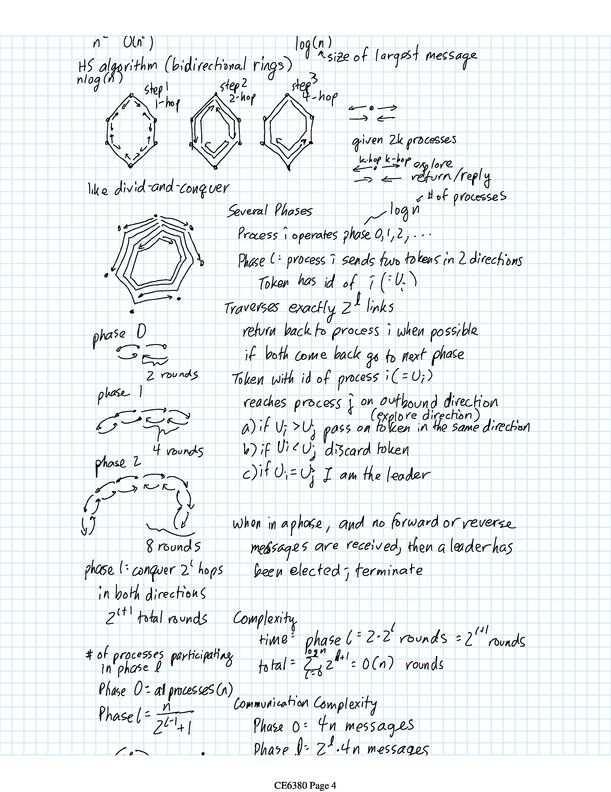 n² O(n²) log(n)
size of largest message
HS algorithm (bidirectional rings)
nlog(n)
step 1
1-hop
step2
2-hop
step3
4-hop
given 2k processes
k-hop k-hop explore
return/reply
like divid-and-conquer
# of processes
Several Phases log n
Process i operates phase 0,1,2, ...
Phase l: process i sends two tokens in 2 directions
Token has id of i (=Ui)
Traverses exactly 2^l links
return back to process i when possible
if both come back go to next phase
phase 0
2 rounds
Token with id of process i (=Ui)
reaches process j on outbound direction
(explore direction)
a) if Ui > Uj pass on token in the same direction
b) if Ui < Uj discard token
c) if Ui = Uj I am the leader
phase 1
4 rounds
phase 2
8 rounds
when in a phase, and no forward or reverse
messages are received, then a leader has
been elected; terminate
phase l: conquer 2^l hops
in both directions
2^l+1 total rounds
Complexity
time: phase l = 2·2^l rounds = 2^l+1 rounds
total = Σ log n l=0 2^l+1 = O(n) rounds
# of processes participating
in phase l
Phase 0 = all processes (n)
Phase l = n / 2^l-1 +1
Communication Complexity
Phase 0: 4n messages
Phase l = 2^l·4n messages
CE6380 Page 4